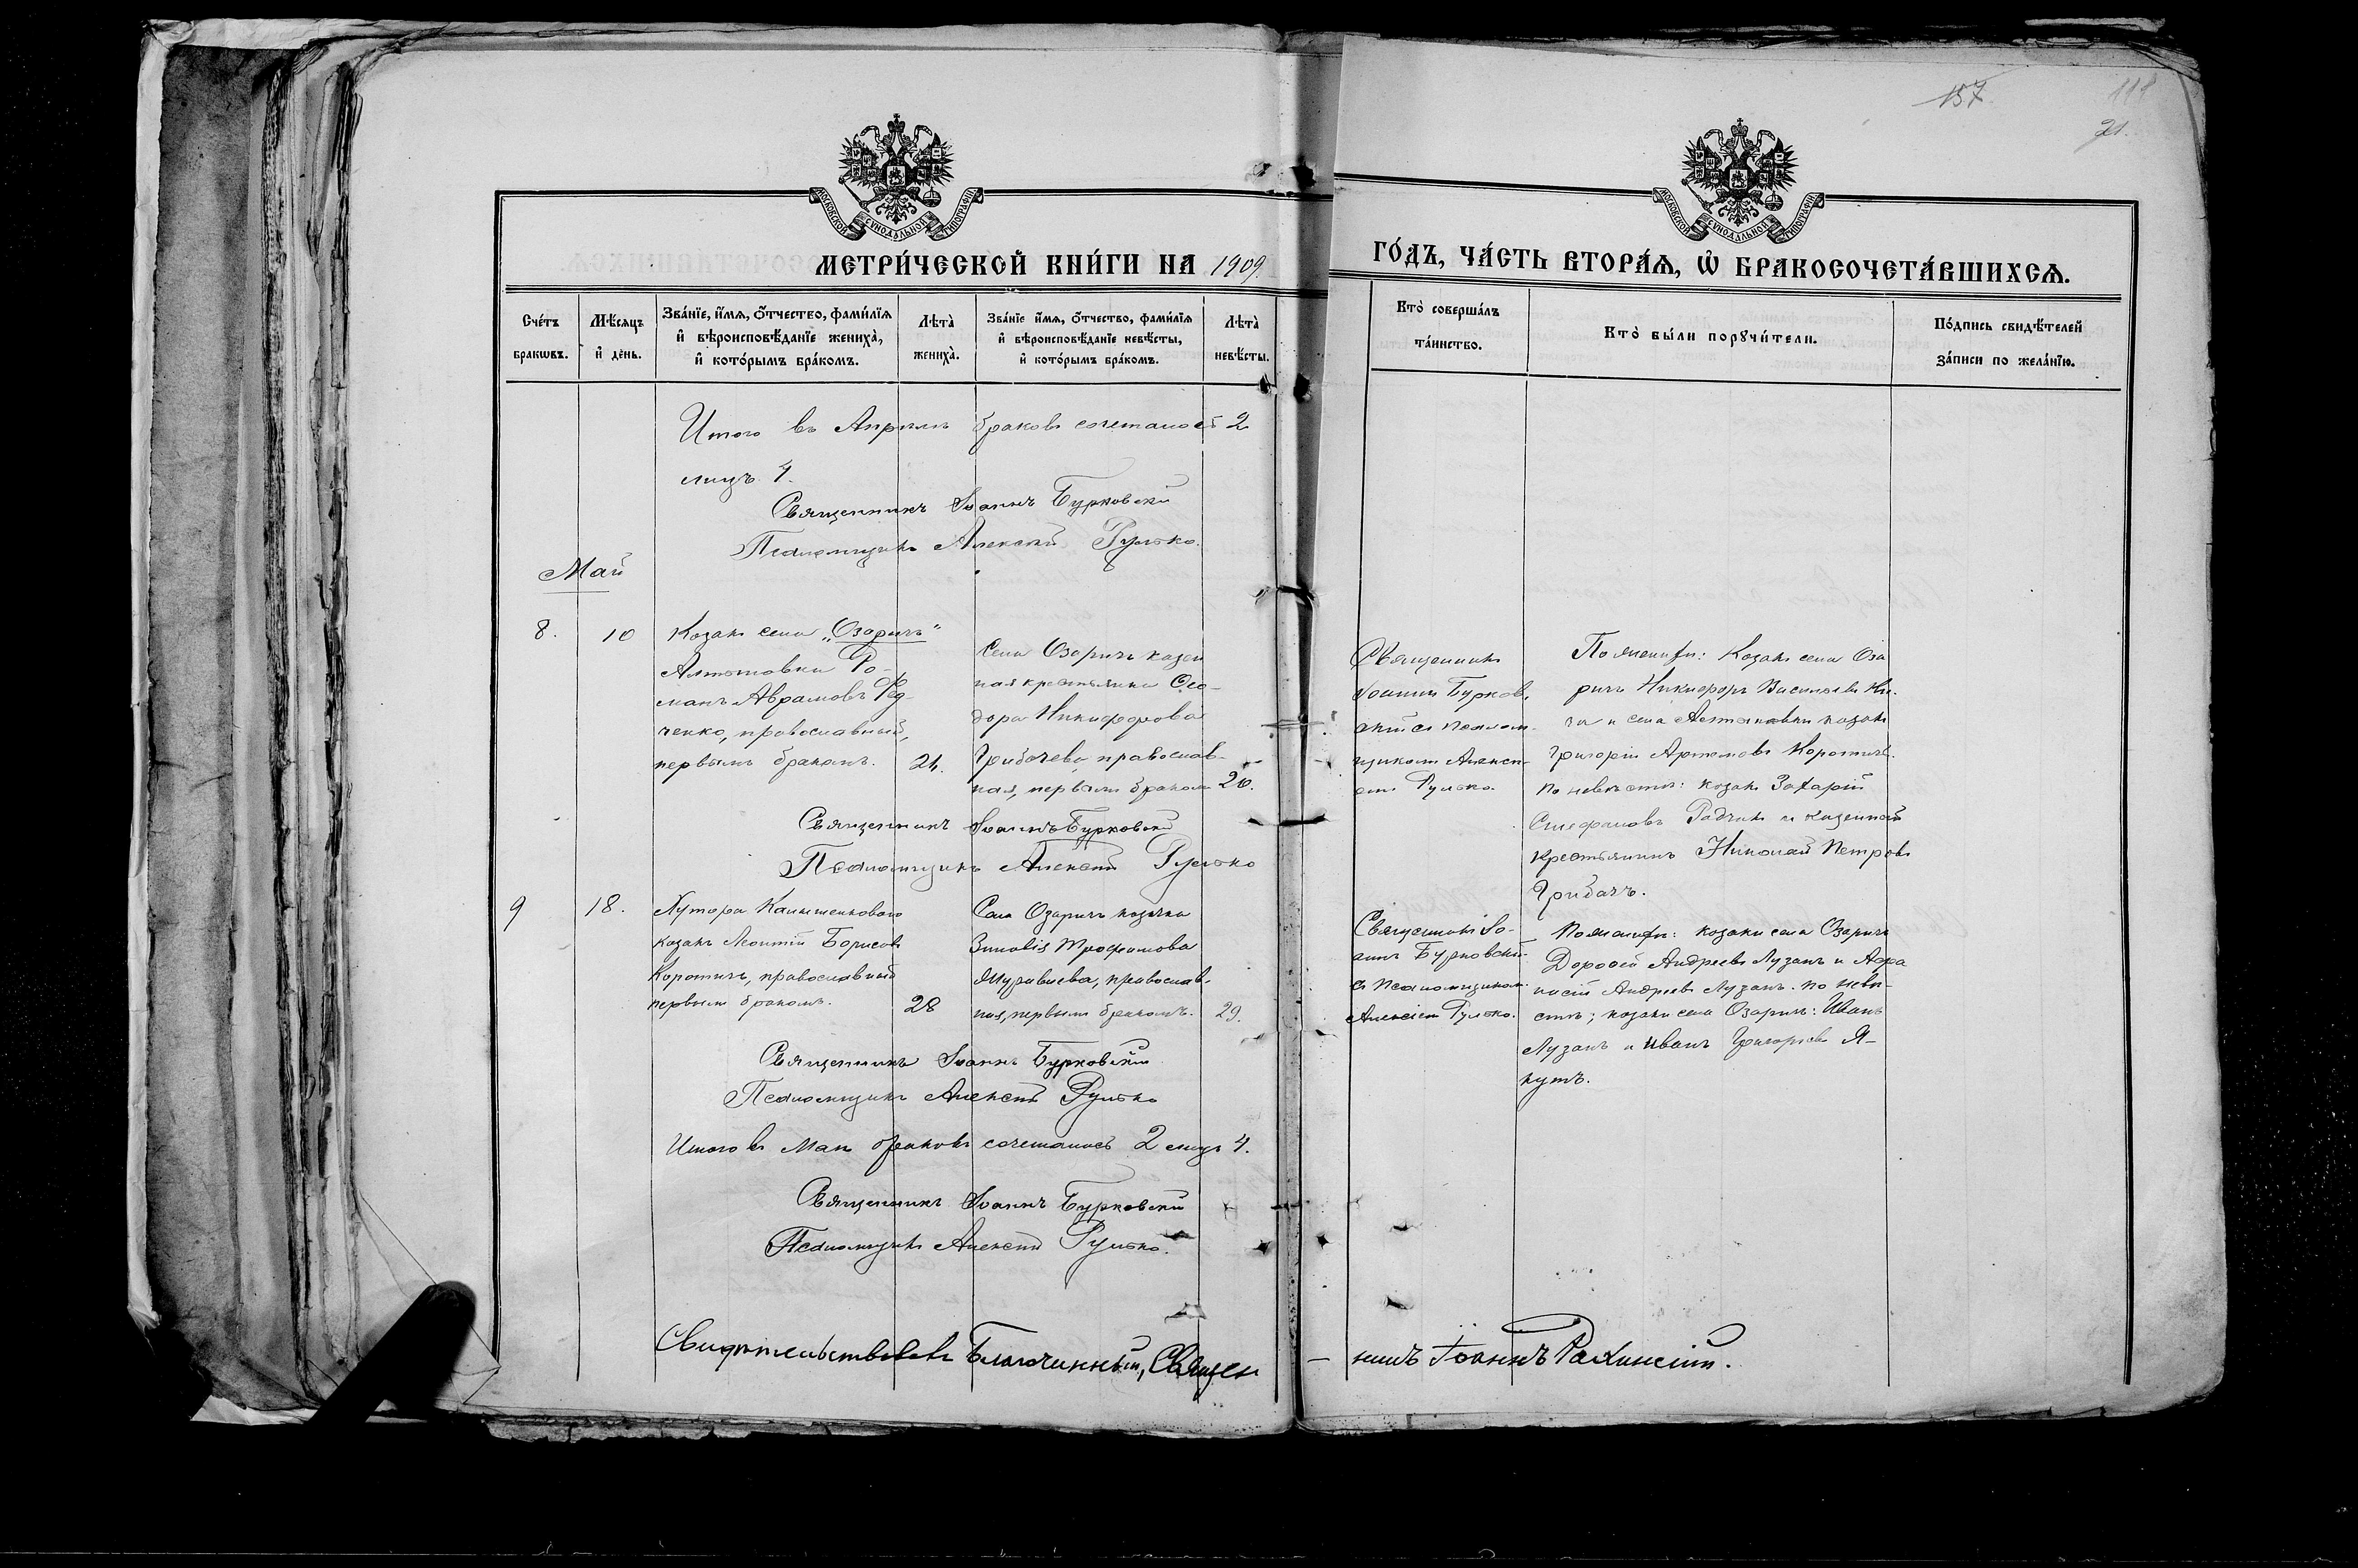 157
118
21.
МОСКОВСКОЙ СѴНОДАЛЬНОЙ ТИПОГРАФІИ
МОСКОВСКОЙ СѴНОДАЛЬНОЙ ТИПОГРАФІИ
МЕТРИ́ЧЕСКОЙ КНИ́ГИ НА 1909.
ГО́ДЪ, ЧА́СТЬ ВТОРА́Ѧ, Ѡ҆ БРАКОСОЧЕТА́ВШИХСѦ.
Сче́тъ браковъ.
Мѣ́сяцъ и҆ де́нь.
Зва́нїе, и҆́мѧ, ѻ҆́тчество, фами́лїѧ
и҆ вѣроисповѣ́данїе жениха̀,
и҆ кото́рымъ бра́комъ.
Лѣта̀ жениха̀.
Зва́нїе и҆́мѧ, ѻ҆́тчество, фами́лїѧ
и҆ вѣроисповѣ́данїе невѣ́сты,
и҆ кото́рымъ бра́комъ.
Лѣта̀ невѣ́сты.
Кто̀ соверша́лъ
та́инство.
Кто̀ бы́ли порꙋчи́тели.
По́дпись свидѣ́телей
за́писи по жела́нїю.
Итого въ Апрѣлѣ браковъ сочеталось 2
лицъ 4.
Священникъ Іоаннъ Бурковскій
Псаломщикъ Алексѣй Рулько.
Май
8.
10
Козакъ села „Озаричъ"
Ро-
манъ Аврамовъ Ред-
ченко, православный,
первымъ бракомъ.
24.
Села Озаричъ казен
ная крестьянка Ѳео-
дора Никифорова
Грибачева, православ-
ная, первымъ бракомъ
20.
Священникъ
Іоаннъ Бурков.
скій съ псалом-
щикомъ Алексѣ-
емъ Рулько.
По женихѣ: Козакъ села Оза
ричъ Никифоръ Васильевъ
и села козакъ
Григорій Артемовъ Коротичъ.
По невѣстѣ: козакъ Захарій
Стефановъ Радчик и казенный
крестьянинъ Николай Петровъ
Грибачъ.
Священникъ Іоаннъ Бурковскій
Псаломщикъ Алексѣй Рулько
9
18.
Хутора
козакъ Леонтій Борисовъ
Коротичъ, православный
первымъ бракомъ.
28
Села Озаричъ козачка
Зиновія Трофимова
Муравьева, православ-
ная, первымъ бракомъ.
29.
Священникъ Іо-
аннъ Бурковскій
съ псаломщикомъ
Алексіемъ Рулько.
По женихѣ: козаки села Озаричъ
Дороѳей Андреевъ Лузанъ и Аѳа
насій Андреевъ Лузанъ. По невѣ-
стѣ; козаки села Озаричъ: Иванъ
Лузанъ и Иванъ Григорьевъ Я-
кутъ.
Священникъ Іоаннъ Бурковскій
Псаломщикъ Алексѣй Рулько
Итого въ Маѣ браковъ сочеталось 2 лицъ 4.
Священникъ Іоаннъ Бурковскій
Псаломщикъ Алексѣй Рулько.
Свидѣтельствовалъ Благочинный, Священ
никъ Іоаннъ